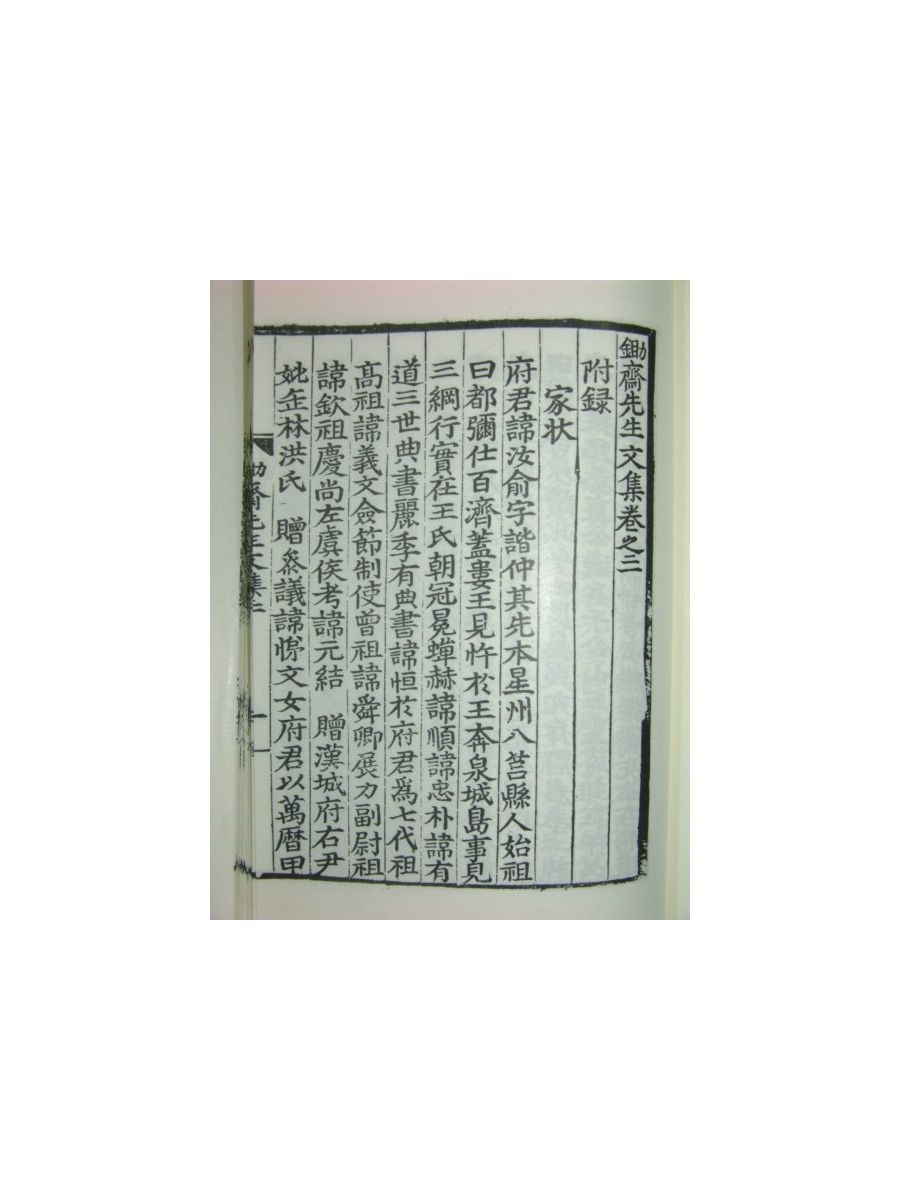 鋤齋先生文集卷之三
附錄
家狀
府君諱汝俞字諧仲其先本星州八莒縣人始祖
曰都彌仕百濟蓋婁王見忤於王奔泉城島事見
三綱行實在王氏朝冠冕蟬赫諱順諱忠朴諱有
道三世典書麗季有典書諱恒於府君爲七代祖
高祖諱義文僉節制使曾祖諱舜卿展力副尉祖
諱欽祖慶尚左虞侯考諱元結 贈漢城府右尹
妣缶林洪氏 贈叅議諱㥞文女府君以萬曆甲